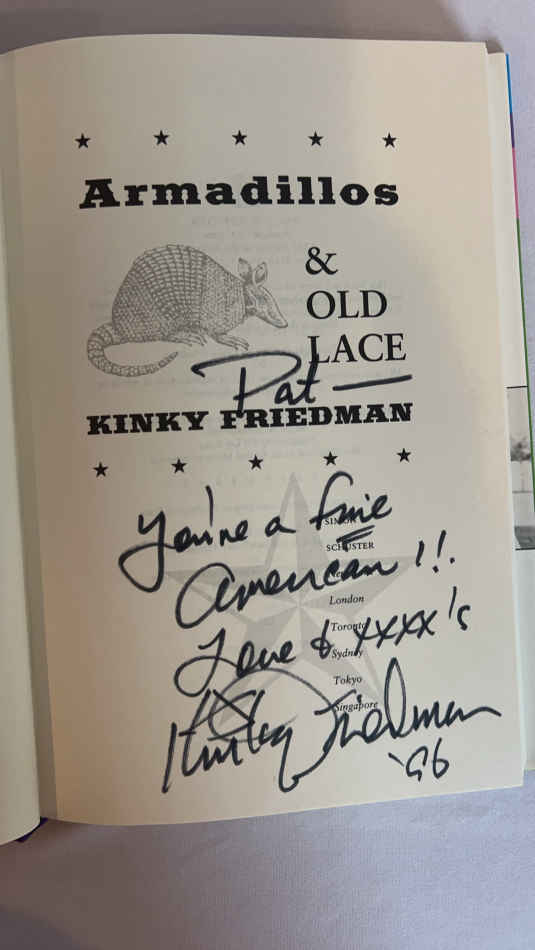 ★ ★ ★ ★ ★
Armadillos
&
OLD
LACE
Pat —
KINKY FRIEDMAN
★ ★ ★ ★ ★
You're a fine
American!!
Love & xxxx's
Kinky Friedman
'96
SIMON &
SCHUSTER
London
Toronto
Sydney
Tokyo
Singapore